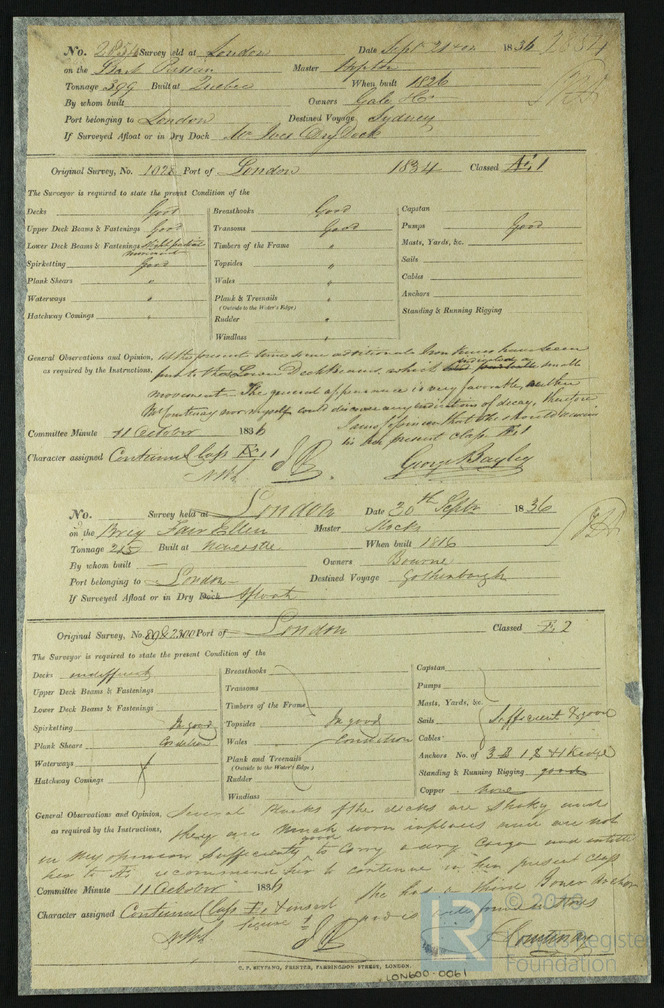 No. 2834 Survey held at London Date Sept 21st 1836 2834
on the Bark Persian Master
Tonnage 399 Built at Quebec When built 1826
By whom built Owners Gale &Co
Port belonging to London Destined Voyage Sydney
If Surveyed Afloat or in Dry Dock Dry Dock
Original Survey, No. 1028 Port of London 1834 Classed Æ 1
The Surveyor is required to state the present Condition of the
Decks Good Breasthooks Good Capstan
Upper Deck Beams & Fastenings Good Transoms Good Pumps Good
Lower Deck Beams & Fastenings Timbers of the Frame " Masts, Yards, &c.
Spirketting Good Topsides " Sails
Plank Shears " Wales " Cables
Waterways " Plank & Treenails " Anchors
(Outside to the Water's Edge)
Hatchway Comings " Rudder " Standing & Running Rigging
Windlass "
General Observations and Opinion, At the present time some additional Iron knees have been
as required by the Instructions, put to the Lower Deck Beams, which indicated a small
movement. The general appearance is very favorable, neither
Mr Courtenay nor myself could discover any indications of decay, therefore
I am of opinion that she should continue
in her present class Æ 1
Committee Minute 11 October 1836
Character assigned Continued Class Æ 1 George Bayley
No. Survey held at London Date 30th Septr 1836
on the Brig Fair Ellen Master Mocks
Tonnage 215 Built at Newcastle When built 1816
By whom built Owners Bourne
Port belonging to London Destined Voyage Gothenburgh
If Surveyed Afloat or in Dry Dock Afloat
Original Survey, No. Port of London Classed E 2
The Surveyor is required to state the present Condition of the
Decks indifferent Breasthooks Capstan
Upper Deck Beams & Fastenings Transoms Pumps
Lower Deck Beams & Fastenings Timbers of the Frame Masts, Yards, &c.
Spirketting In good Topsides In good Sails Sufficient & good
Plank Shears Condition Wales Condition Cables
Waterways Plank and Treenails Anchors No. of 3 B 1 S & 1 Kedge
(Outside to the Water's Edge)
Hatchway Comings Rudder Standing & Running Rigging good
Windlass Copper none
General Observations and Opinion, Several Planks of the decks are Shaky and
as required by the Instructions, they are much worn in places and are not
in my opinion sufficiently good to Carry a dry Cargo and intitle
her to Æ recommend her to continue in her present Class
Committee Minute 11 October 1836 She has a third Bower Anchor
Character assigned Continued Class E & insert figure 1 and is well found in others
Courtenay
C. F. SEYFANG, PRINTER, FARRINGDON STREET, LONDON.
LON600-0061
© 2015
LR
Lloyd's Register
Foundation